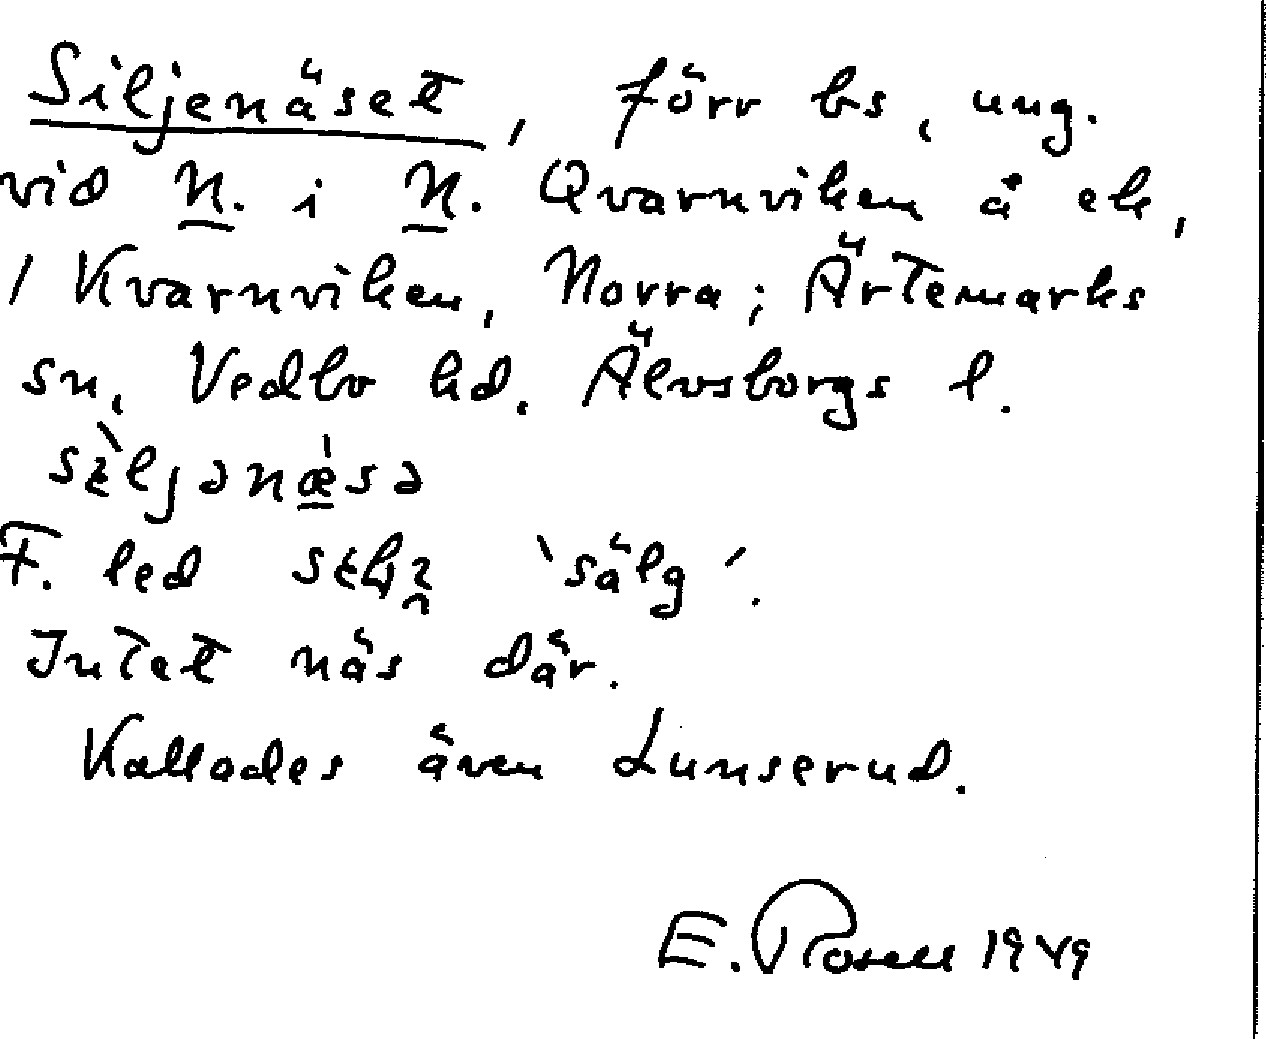 Siljenäset, förr bs, ung.
vid N. i N. Qvarnviken å ek,
/ Kvarnviken, Norra; Ärtemarks
sn, Vedbo hd. Älvsborgs l.
F. led 'sälg'.
Intet näs där.
Kallades även Lunserud.
E. Rosell 1949